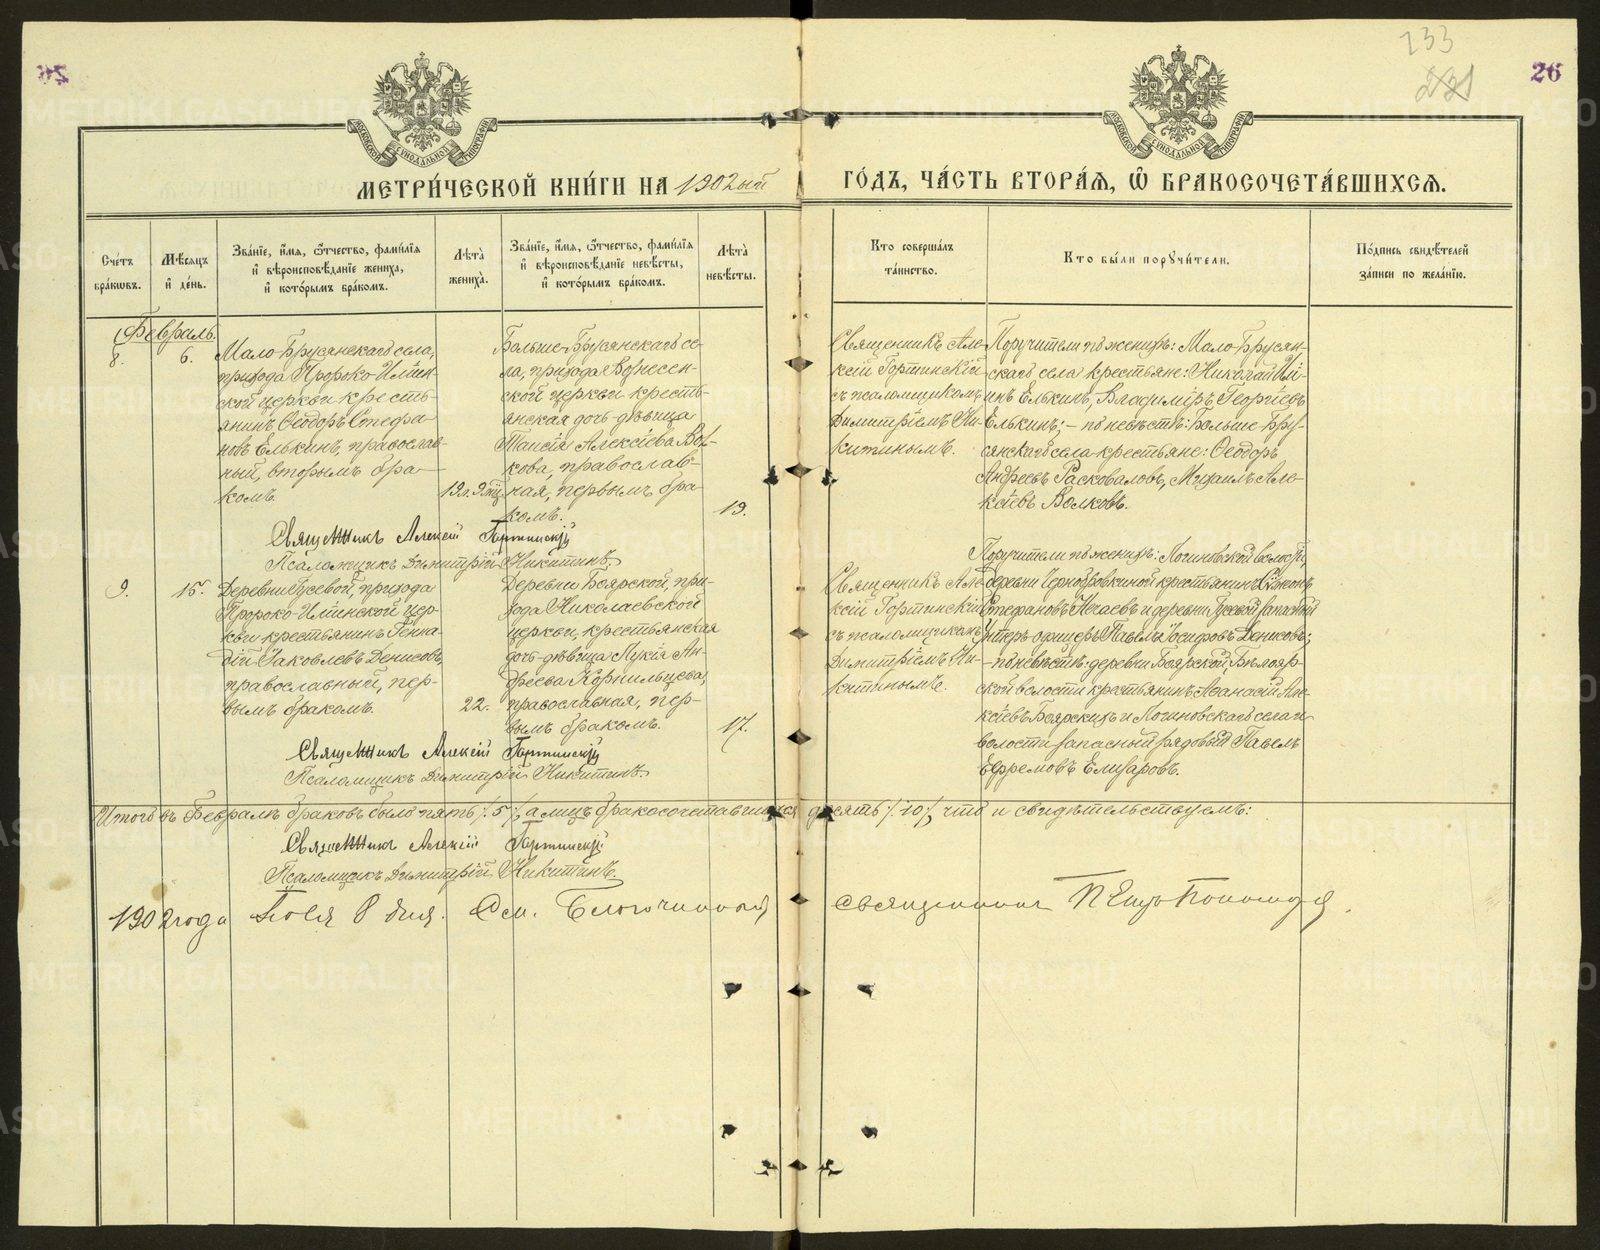 233
26
МЕТРИ́ЧЕСКОЙ КНИ́ГИ НА 1902ый
ГО́ДЪ, ЧА́СТЬ ВТОРА́Я, Ѡ БРАКОСОЧЕТА́ВШИХСЯ.
Сче́тъ
бра́кωвъ.
Мѣ́сяцъ
и҆ де́нь.
Зва́нїе, и҆́мя, ѻ҆́тчество, фами́лїя
и҆ вѣроисповѣ́данїе жениха̀,
и҆ кото́рымъ бра́комъ.
Лѣ́та
жениха̀.
Зва́нїе, и҆́мя, ѻ҆́тчество, фами́лїя
и҆ вѣроисповѣ́данїе невѣ́сты,
и҆ кото́рымъ бра́комъ.
Лѣ́та
невѣ́сты.
Кто соверша́лъ
та́инство.
Кто бы́ли порꙋчи́тели.
По́дпись свидѣ́телей
за́писи по жела́нїю.
Февраль.
8.
6.
Мало-Брусянскаго села,
прихода Пророко-Илiин-
ской церкви кресть-
янинъ Ѳеодоръ Стефа-
новъ Елькинъ, православ-
ный, вторымъ бра-
комъ.
19л. 9мц.
Больше-Брусянскаго се-
ла, прихода Вознесен-
ской церкви кресть-
янская дочь-дѣвица
Таисiя Алексiева Вол-
кова, православ-
ная, первымъ бра-
комъ.
19.
Священникъ Але-
ксiй Гортинскiй
съ псаломщикомъ
Димитрiемъ Ни-
китинымъ.
Поручители по женихѣ: Мало-Брусян-
скаго села крестьяне: Николай Иль-
инъ Елькинъ, Владимiръ Георгiевъ
Елькинъ; - по невѣстѣ: Больше-Бру-
сянскаго села крестьяне: Ѳеодоръ
Андреевъ Расковаловъ, Михаилъ Але-
ксiевъ Волковъ.
Священникъ Алексiй Гортинскiй
Псаломщикъ Димитрiй Никитинъ.
9.
15.
Деревни Гусевой, прихода
Пророко-Илiинской цер-
кви крестьянинъ Генна-
дiй Iаковлевъ Денисовъ,
православный, пер-
вымъ бракомъ.
22.
Деревни Боярской, при-
хода Николаевской
церкви, крестьянская
дочь-дѣвица Лукiя Ан-
дреева Корнильцева,
православная, пер-
вымъ бракомъ.
17.
Священникъ Але-
ксiй Гортинскiй
съ псаломщикомъ
Димитрiемъ Ни-
китинымъ.
Поручители по женихѣ: Логиновской волости,
деревни Чернобровкиной крестьянинъ Симеонъ
Стефановъ Нехаевъ и деревни Гусевой запасный
Унтеръ-офицеръ Павелъ Iосифовъ Денисовъ;
- по невѣстѣ: деревни Боярской, Бѣлояр-
ской волости крестьянинъ Аѳанасiй Але-
ксiевъ Боярскихъ и Логиновскаго села и
волости запасный рядовый Павелъ
Ефремовъ Елизаровъ.
Священникъ Алексiй Гортинскiй
Псаломщикъ Димитрiй Никитинъ.
Итого въ Февралѣ браковъ было пять /:5:/, а лицъ бракосочетавшихся десять /:10:/, что и свидѣтельствуемъ:
Священникъ Алексiй Гортинскiй
Псаломщикъ Димитрiй Никитинъ.
1902 года Iюля 8 дня. Благочинный священникъ